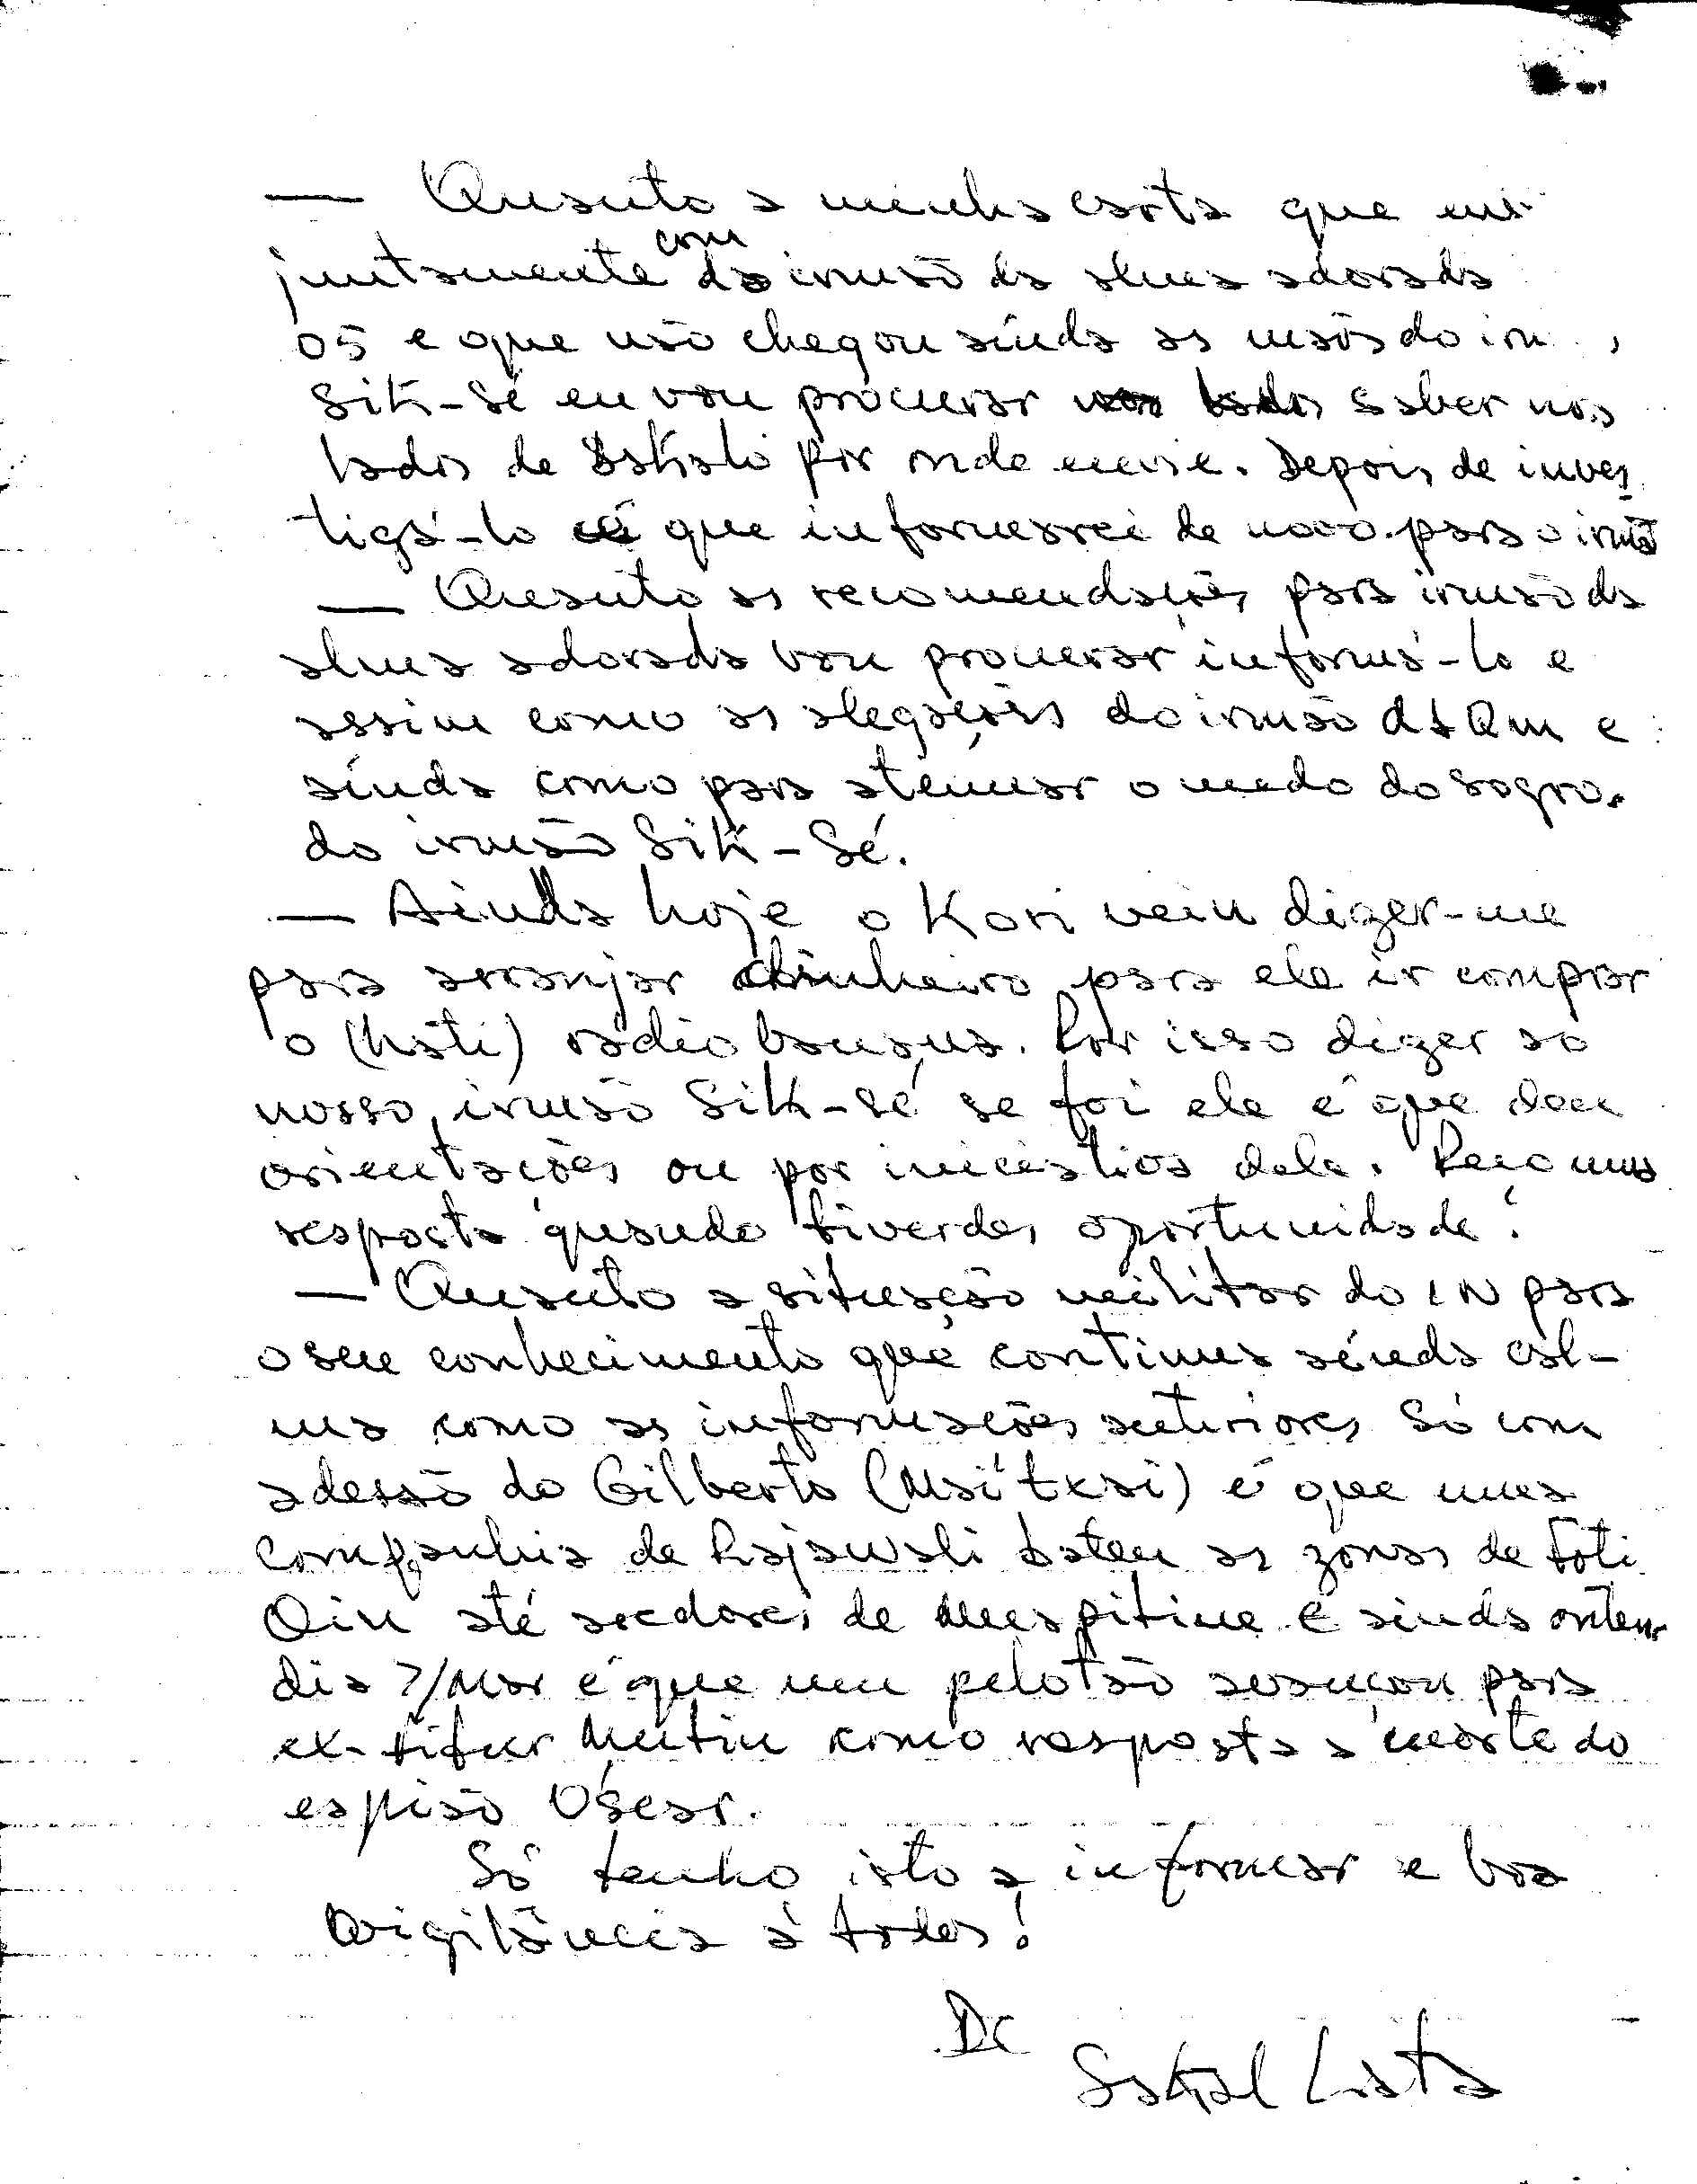 — Quanto a minha carta que
juntamente com do irmão da alma adorada
05 e que não chegou ainda as maõs do
Sik-Sé eu vou procurar saber nos
lados de por onde Depois de inves
tigá-lo que informarei de novo para o irmão
— Quanto as recomendações para irmão da
alma adorada vou procurar informá-lo e
assim como as alegações do irmão e
ainda como para atenuar o medo do sogro.
do irmão Sik-Sé.
— Ainda hoje o Kori vein dizer-me
para arranjar dinheiro para ele ir comprar
o (hati) rádio banana. Por isso dizer ao
nosso irmão Sik-Sé se foi ele é que deu
orientações ou por iniciativa dele. Peço uma
resposta quando tiverdes oportunidade.
— Quanto a situação militar do IN para
o seu conhecimento que continua ainda cal-
ma como as informações anteriores Só com
adesão do Gilberto é que uma
companhia de Rajawali bateu as zonas de Foti
Oin até aredores de e ainda ontem
dia 7/Mar é que um pelotão avançou para
ex-tifur Mutin como resposta a morte do
espião Óscar.
Só tenho isto a informar e boa
vigilância á todos!
Dc
Sakal Lata